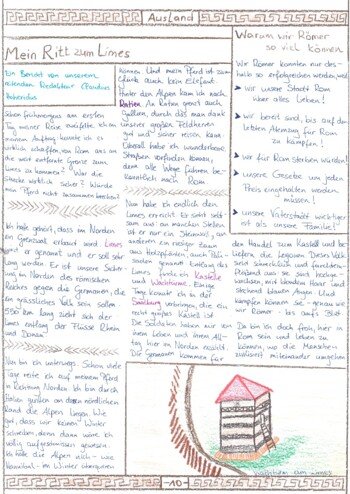 Ausland
Mein Ritt zum Limes
Ein Bericht von unserem
reitenden Redakteur Claudius
Schon frühmorgens am ersten
Tag meiner Reise zweifelte ich an
meinem Auftrag: konnte ich es
wirklich schaffen, von Rom aus an
die weit entfernte Grenze zum
Limes zu kommen? War die
Strecke wirklich sicher? Würde
mein Pferd nicht zusammen brechen?
Ich habe gehört, dass im Norden
ein Grenzwall erbaut wird. Limes
wird er genannt und er soll sehr
lang werden. Er ist unsere Sicher-
ung im Norden des römischen
Reiches gegen die Germanen, die
ein grässliches Volk sein sollen.
550 km lang zieht sich der
Limes entlang der Flüsse Rhein
und Donau.
Nun bin ich unterwegs. Schon viele
Tage reite ich auf meinem Pferd
in Richtung Norden. Ich bin durch
Italien geritten an dem nördlichen
Rand die Alpen liegen. Wie
gut, dass wir keinen Winter
schreiben, denn dann wäre ich
völlig aufgeschmissen gewesen.
Ich hätte die Alpen nich - wie
Hannibal - im Winter überqueren
können. Und mein Pferd ist zum
Glück auch kein Elefant.
Hinter den Alpen kam ich nach
Rätien. An Rätien grenzt auch
Gallien, durch das man dank
unserer großen Feldherren
gut und sicher reisen kann.
Überall habe ich wunderbare
Straßen vorfinden können,
denn alle Wege führen be-
kanntlich nach Rom.
Nun habe ich endlich den
Limes erreicht. Er sieht selt-
sam aus: an manchen Stellen
ist er ein Steinwall, an
anderen ein riesiger Zaun
aus Holzpfählen, auch Palis-
saden genannt. Entlang des
Limes finde ich Kastelle
und Wachtürme. Einige
Tage konnte ich in der
Saalburg verbringen, die ein
recht großes Kastell ist.
Die Soldaten haben mir von
ihrem Leben und ihrem All-
tag hier im Norden erzählt.
Die Germanen kommen für
den Handel zum Kastell und be-
liefern die Truppen. Dieses Volk
sieht schrecklich und furchtein-
flößend aus: sie sind hochge-
wachsen, mit blondem Haar und
stechend blauen Augen. Und
kämpfen können sie - genau wie
wir Römer - bis aufs Blut.
Da bin ich doch froh, hier in
Rom sein und leben zu
können, wo die Menschen
zivilisiert miteinander umgehen
Warum wir Römer
so viel können
Wir Römer konnten nur des-
halb so erfolgreich werden, weil
wir unsere Stadt Rom
über alles lieben!
wir bereit sind, bis auf den
letzten Atemzug für Rom
zu kämpfen!
wir für Rom sterben würden!
unsere Gesetze um jeden
Preis eingehalten werden
müssen!
unsere Vaterstadt wichtiger
ist als unsere Familie!
Wachturm am Limes
-10-